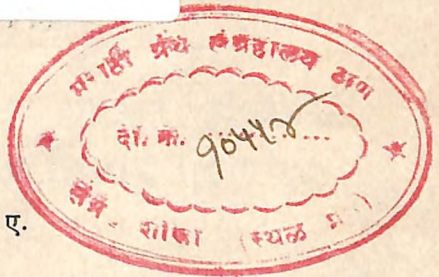 मराठी ग्रंथ संग्रहालय ठाणे
दा. क्र. १०५५४
ए.
शाखा (स्थळ